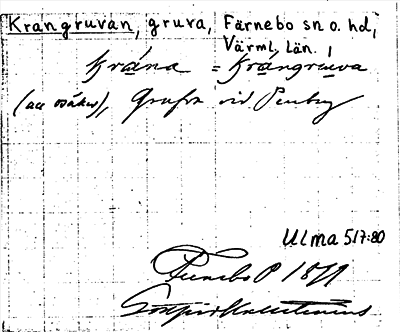 Krangruvan, gruva, Färnebo sn o. hd,
Värml. län.
Kråna = Krångruva
(acc osäker), Grufva vid Persberg
Ulma 517:80
Fernebo P 1879